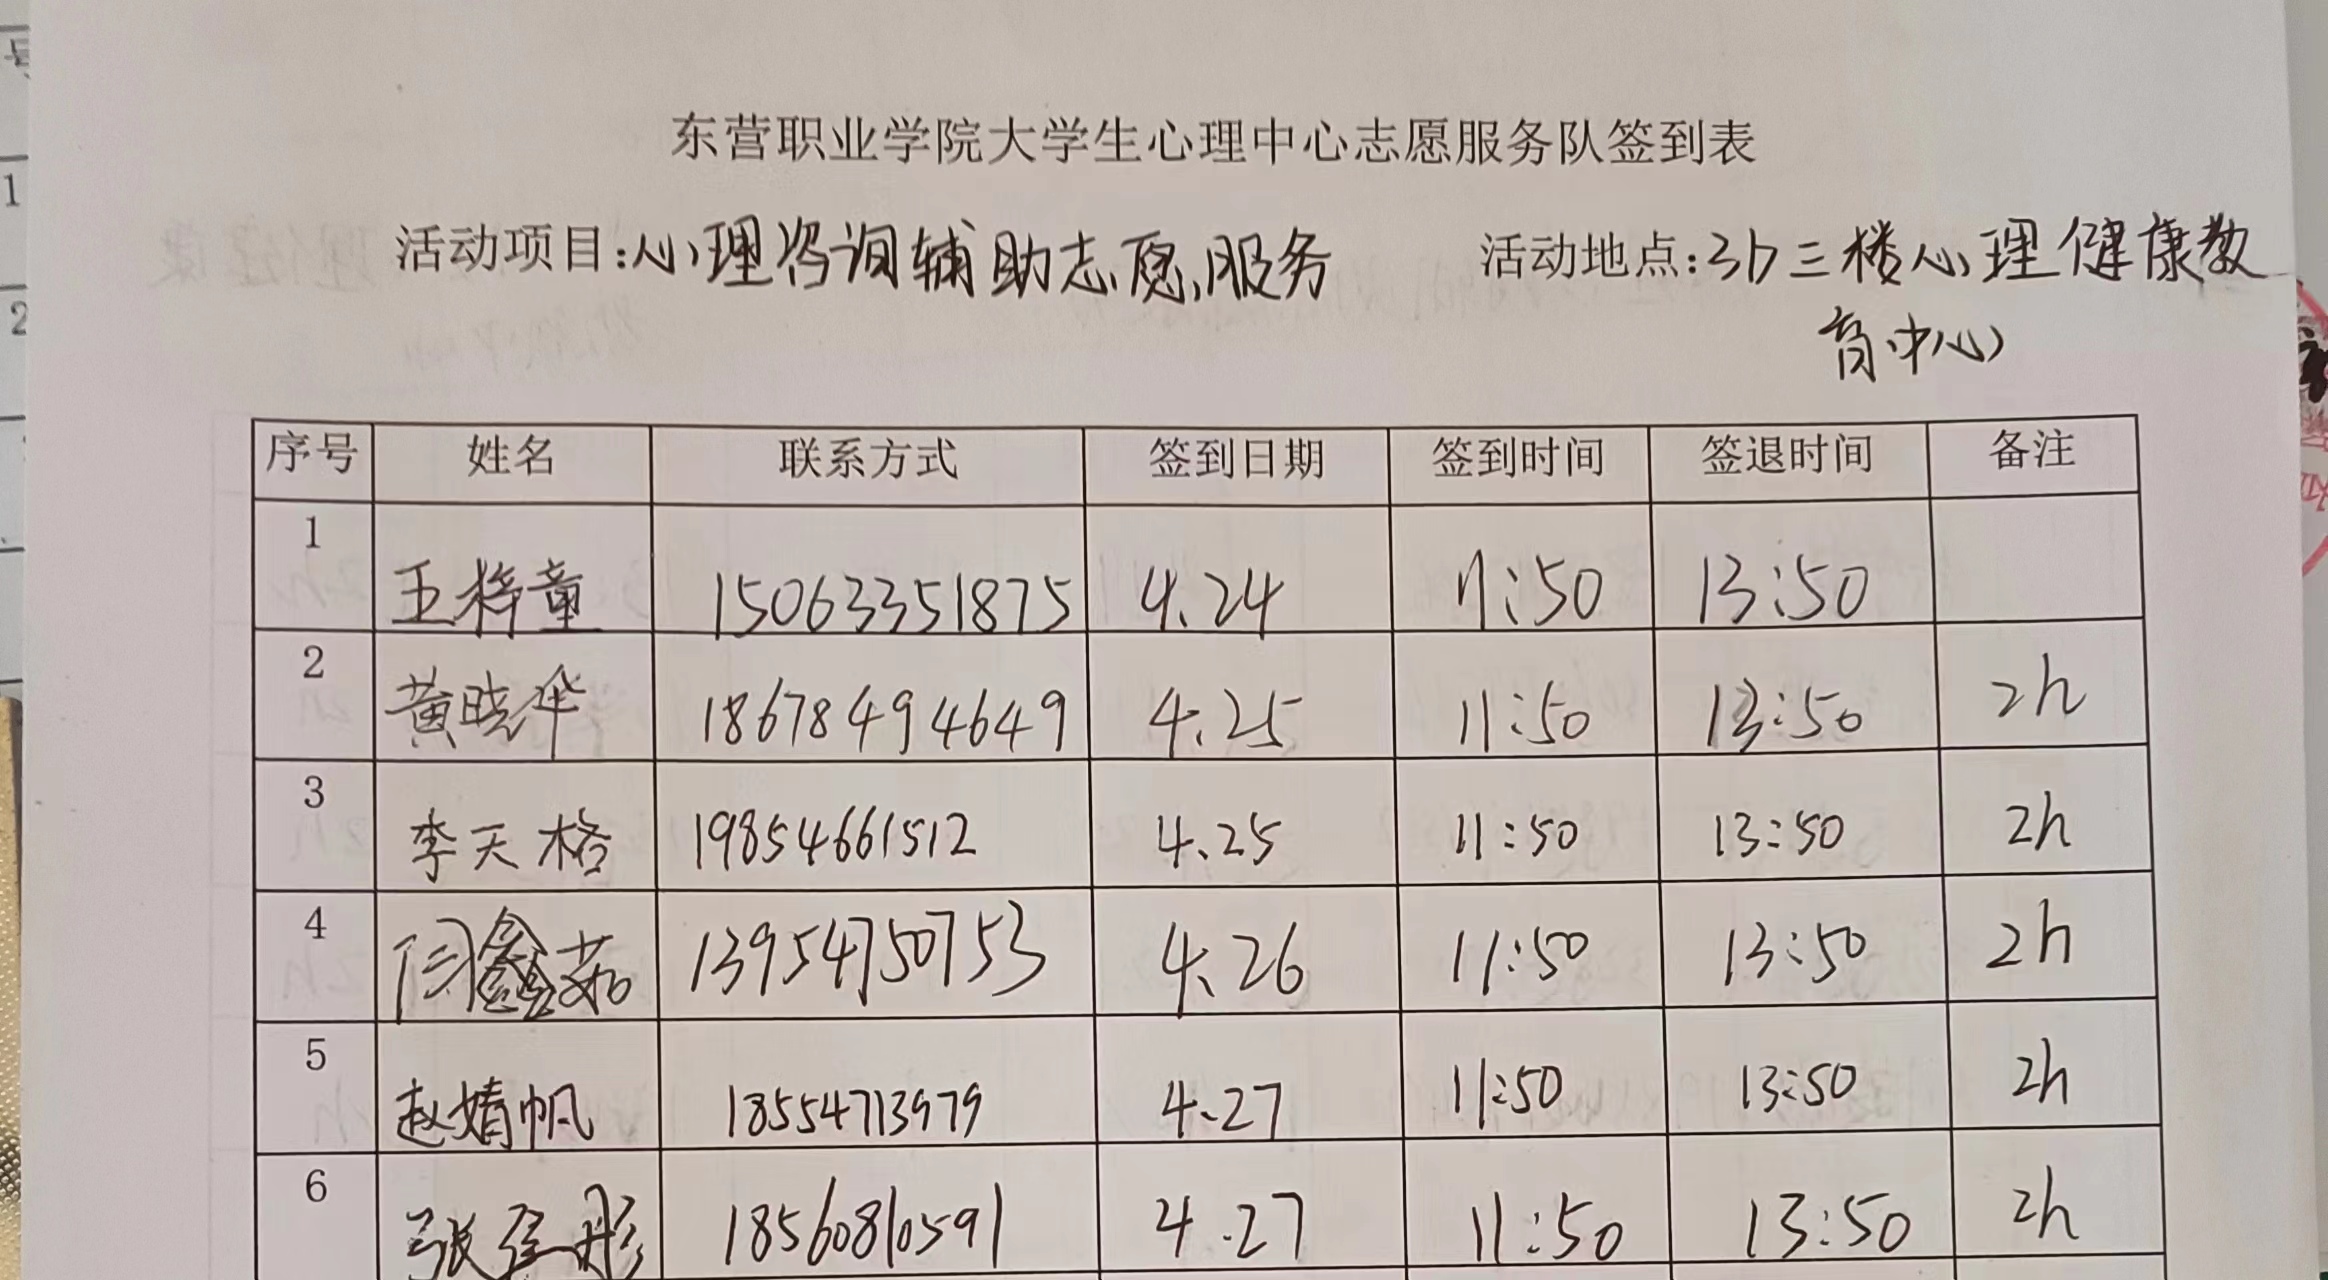 东营职业学院大学生心理中心志愿服务队签到表
活动项目:心理咨询辅助志愿服务 活动地点:3b三楼心理健康教
育中心
序号 姓名 联系方式 签到日期 签到时间 签退时间 备注
1 王梓童 15063351875 4.24 11:50 13:50
2 黄晓华 18678494649 4.25 11:50 13:50 2h
3 李天格 19854661512 4.25 11:50 13:50 2h
4 闫鑫茹 13954750753 4.26 11:50 13:50 2h
5 赵婧帆 18554713979 4.27 11:50 13:50 2h
6 张 彤 18560810591 4.27 11:50 13:50 2h